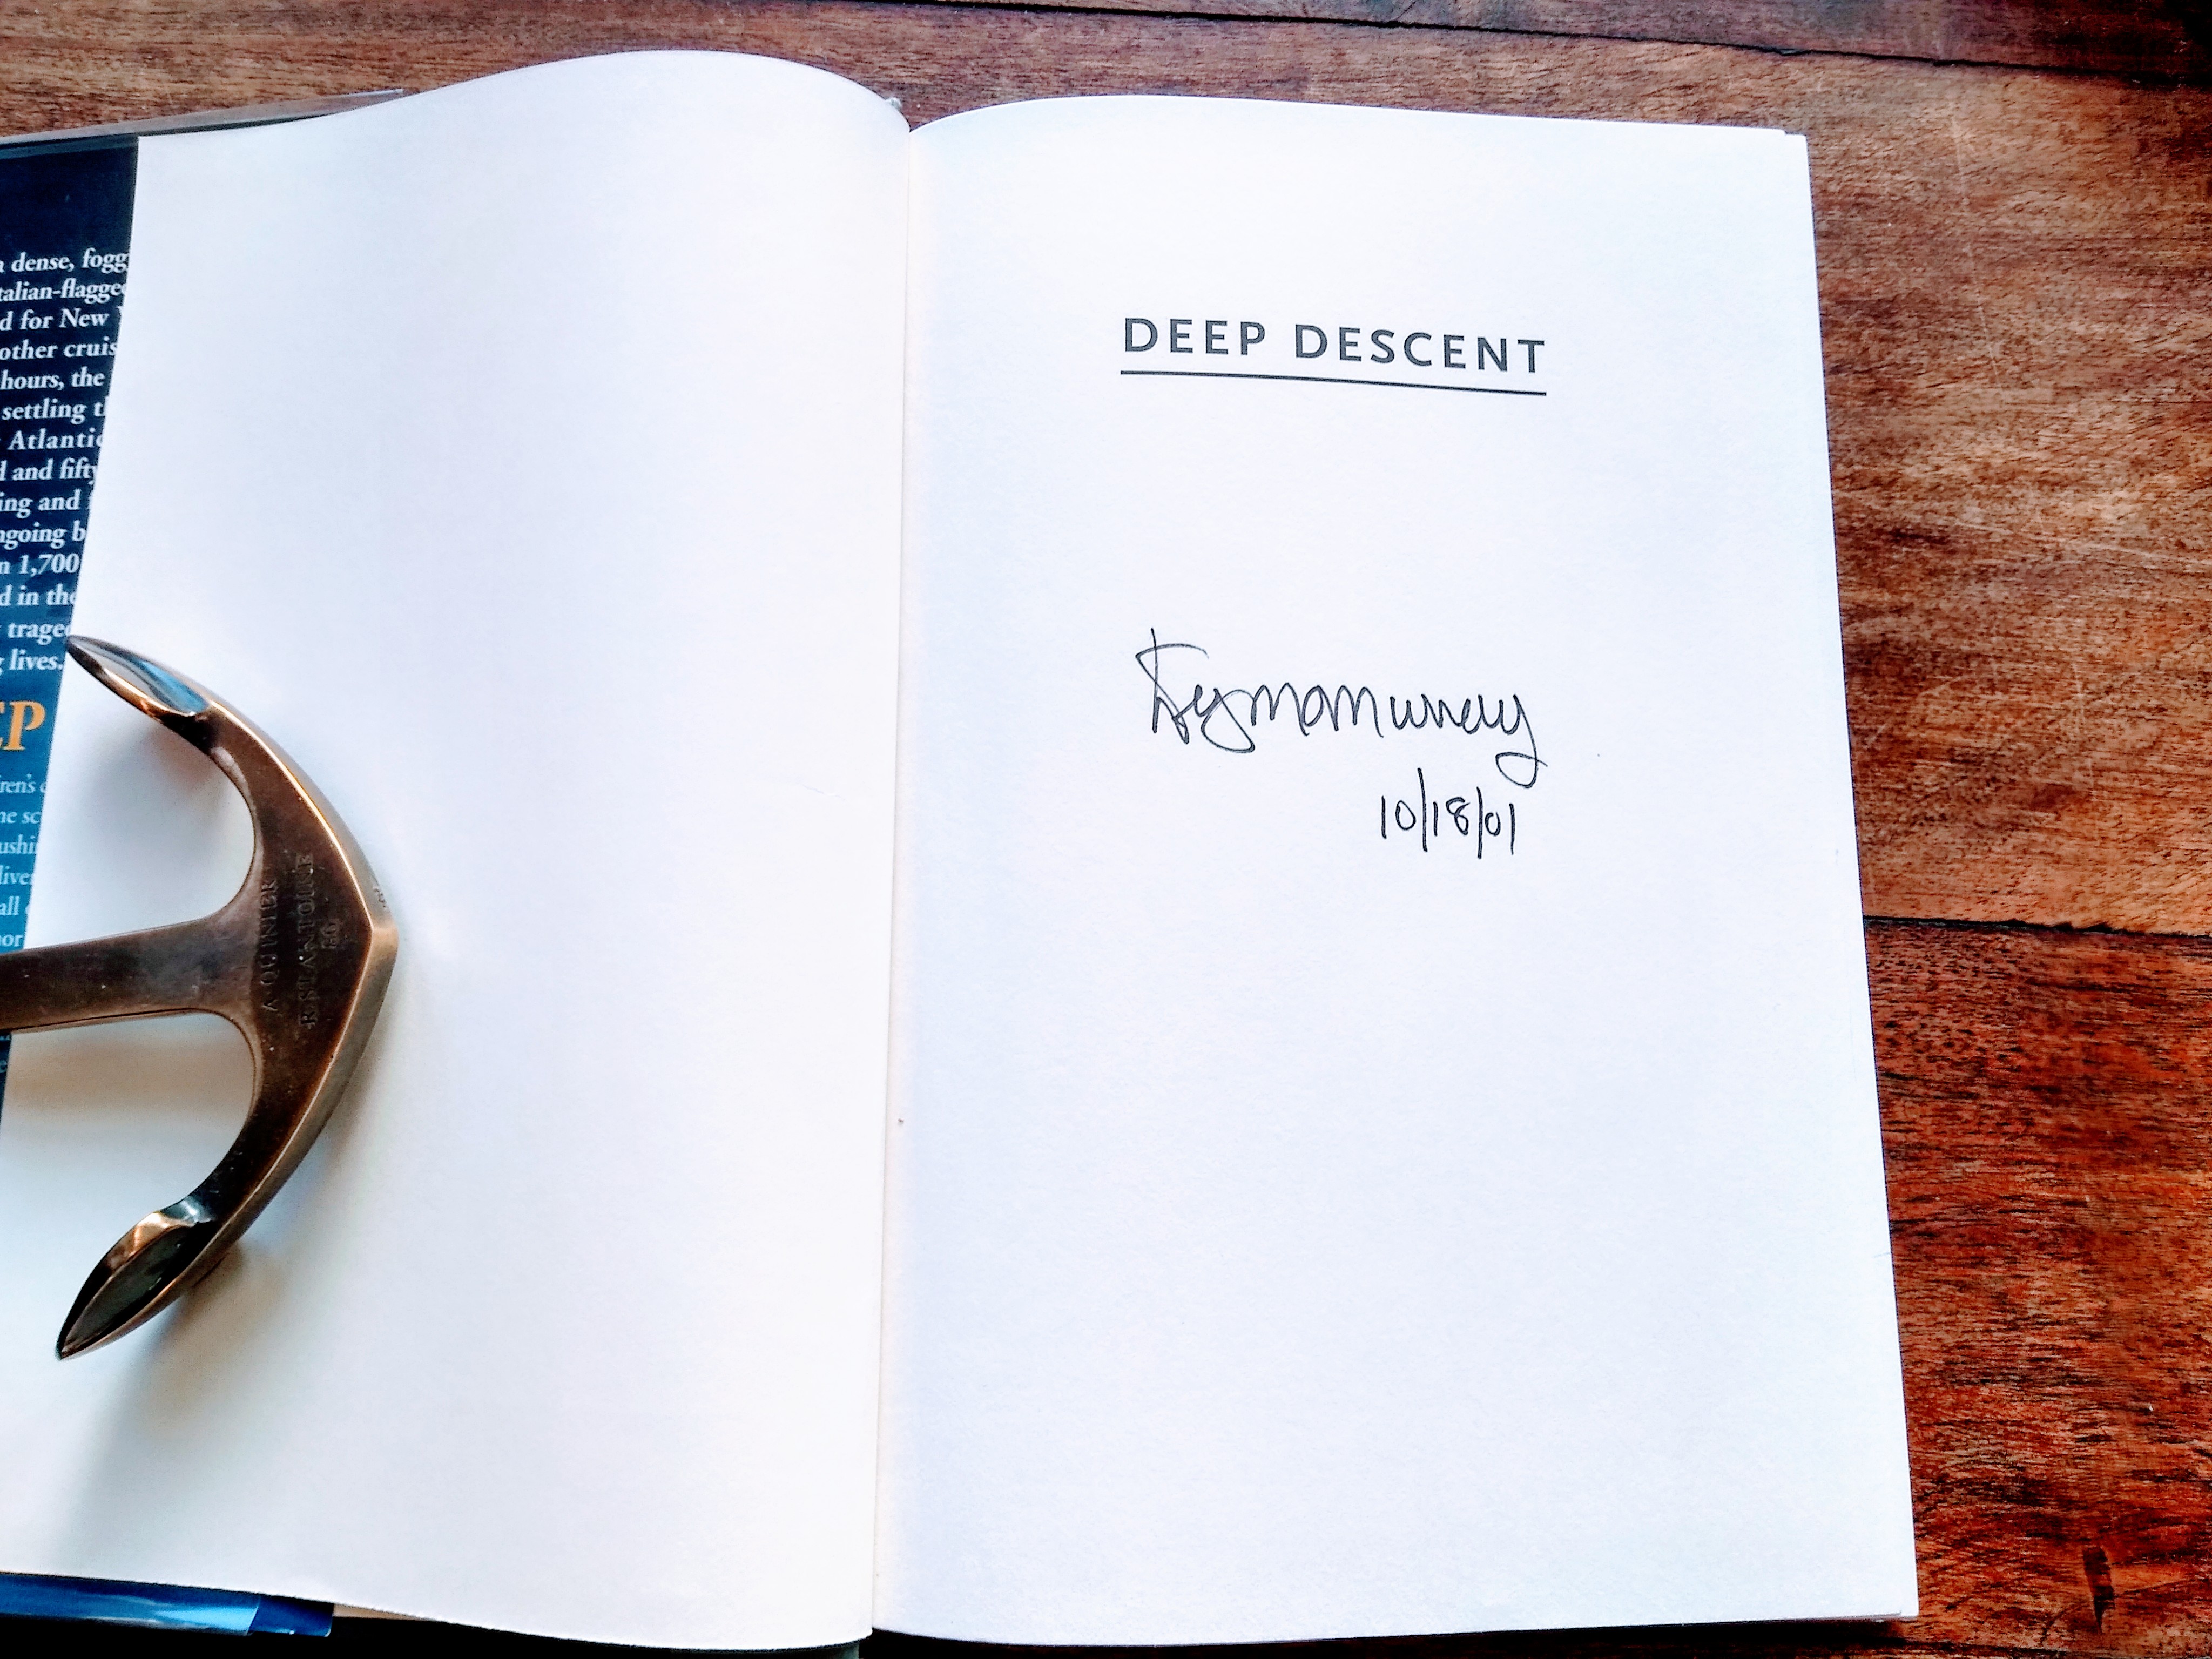 dense, fogg
talian-flagged
d for New
other cruis
hours, the
settling t
Atlantic
d and fifty
ing and
ngoing b
n 1,700
d in the
traged
lives.
EP
ren's
ne sc
ushi
live
all
nor
DEEP DESCENT
McMurray
10/18/01